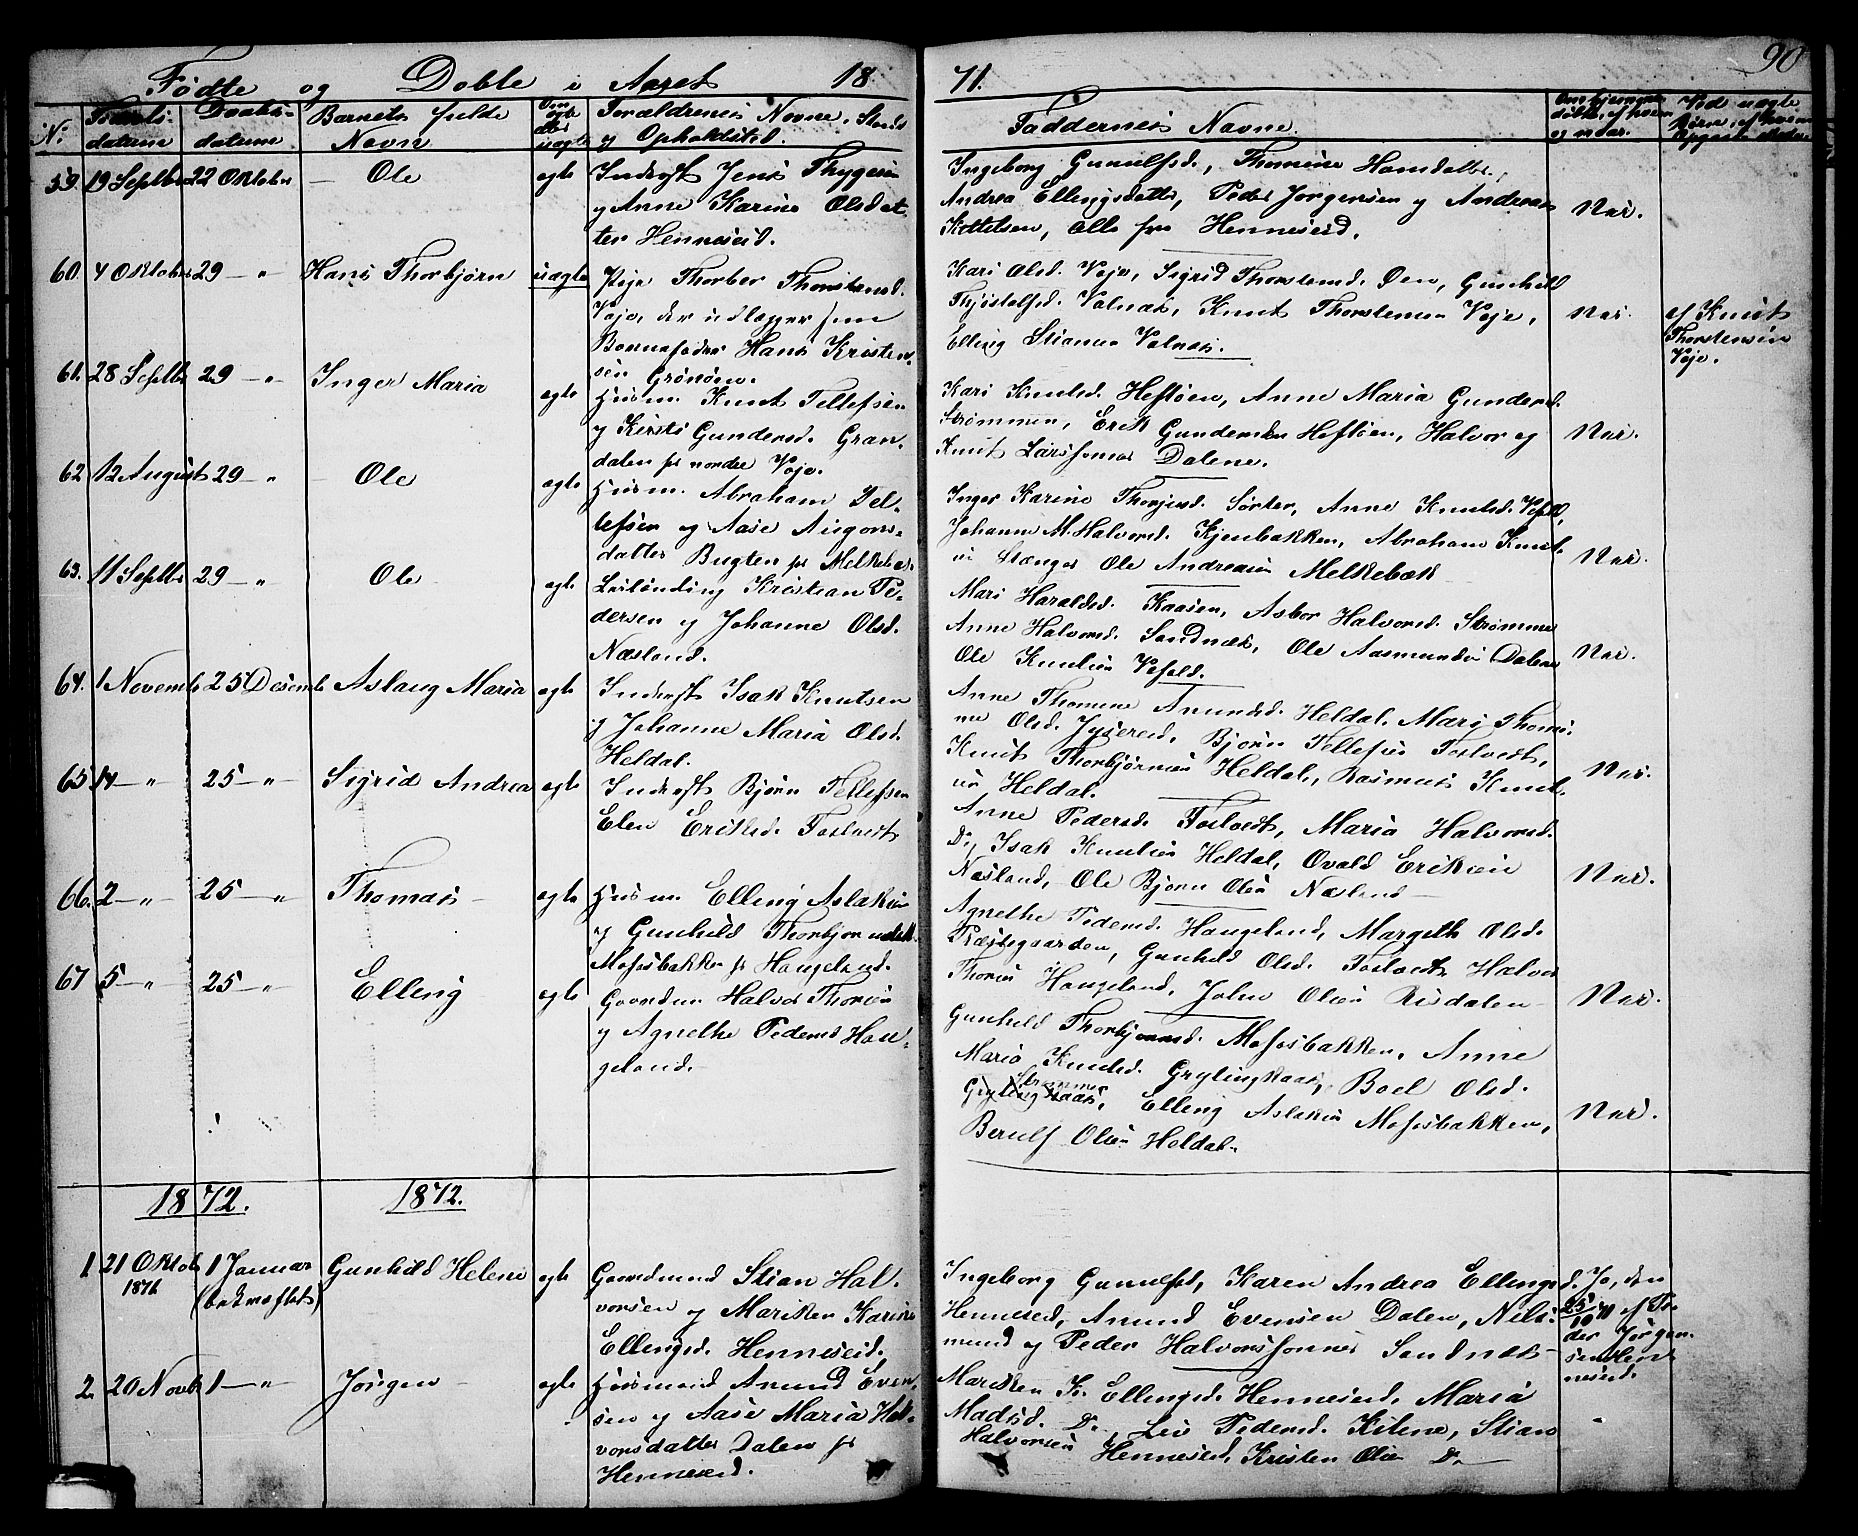 Fødte og Døbte i Aaret 18
71.
90
No
Fødsels-
datum
Daabs-
datum
Barnets fulde
Navn
Om
ægte
eller
uægte
Forældrenes Navne, Stand
og Opholdssted.
Faddernes Navne.
Om hjemme
døbt, af hvem
og naar.
Ved uægte
59. 19 Septbr 22 Oktober — Ole
ægte
Inderst Jens Thygesen
og Anne Karine Olsdat
ter Henneseid.
Ingeborg Gunulfsd., Thomine Hansdatter,
Andrea Ellingsdatter, Peder Jørgensen og Andreas
Kittelsen, Alle fra Henneseid.
Nei.
60. 4 Oktober 29 — " Hans Thorbjørn
uægte
Pige Thorbor Thorstensd.
Vejo, der udlægger som
Barnefader Hans Kristen-
sen Grønøen.
Kari Olsd. Vejo, Sigrid Thorstensd. Øen, Gunhild
Thjøstolfsd. Valnæs, Knut Thorstensen Vejo,
Elling Stiansen Valnæs.
Nei.
af Knut
Thorstensen
Vejo.
61. 28 Septbr 29 — " Inger Maria
ægte
Husm. Knut Tellefsen
og Kirsti Gundersd. Gran-
dalen pr nordre Vejo.
Kari Knutsd. Heftøen, Anne Maria Gundersd.
Strømmen, Erik Gundersen Heftøen, Halvor og
Knut Larssønner Dalene.
Nei.
62 12 August 29 — " Ole
ægte
Husm. Abraham Tel-
lefsen og Aase Aagons-
datter Bugten pr Melkebæk
Inger Karine Thorgersd. Sørter, Anne Knutsd. Vefald,
Johanne M. Halvorsd. Kjenbakken, Abraham Knut-
sen Stanges Ole Andreasen Melkebæk
Nei.
63. 11 Septbr 29 — " Ole
ægte
Løslønding Kristian Pe-
dersen og Johanne Olsd.
Næsland.
Mari Haraldsd. Kaasen, Asbor Halvorsd. Strømme
Anne Halvorsd. Sandnæs, Ole Aasmundsen Dalene
Ole Knutsen Vefald.
Nei.
64. 1 Novemb 25 Desemb Aslaug Maria
ægte
Inderst Isak Knutsen
og Johanne Maria Olsd.
Heldal.
Anne Thomine Amundsd. Heldal, Mari Thomi-
ne Olsd. Jysereid, Bjørn Tellefsen Foslvedt,
Knut Thorbjørnsen Heldal, Rasmus Knut-
sen Heldal.
Nei.
65 14 — " 25 — " Sigrid Andrea
ægte
Inderst Bjørn Tellefsen
Elen Eriksd. Foslvedt
Anne Pedersd. Foslvedt, Maria Halvorsd.
Do, Isak Knutsen Heldal, Ovald Eriksen
Næsland, Ole Bjørn Olsen Næsland
Nei.
66. 2 — " 25 — " Thomas
ægte
Husm. Elling Aslaksen
og Gunhild Thorbjørnsdatt.
Mosesbakken pr Haugeland.
Agnethe Pedersd. Haugeland, Margethe Olsd.
Præstegaarden, Gunhild Olsd. Foslvedt Halvor
Thorsen Haugeland, John Olsen Risdalen
Nei.
67 5 — " 25 — " Elling
ægte
Gaardm. Halvor Thorsen
og Agnethe Pedersd Hau-
geland.
Gunhild Thorbjørnsd. Mosesbakken, Anne
Maria Knutsd. Grytingkaas, Boel Olsd.
Strømme
Grytingkaas, Elling Aslaksen Mosesbakken,
Berulf Olsen Heldal.
Nei.
1872. 1872.
1. 21 Oktob 1 Januar Gunhild Helene
1871 (bekræftet)
ægte
Gaardmand Stian Hal-
vorsen og Mariken Karine
Ellingsd. Henneseid,
Ingeborg Gunulfsd, Karen Andrea Ellingsd.
Henneseid, Amund Evensen Dalen, Nils
mund og Peder Halvorssønner Sandnæs
Ja, den
25/10 71 af Pe-
der Jørgen-
sen Hen-
neseid.
2. 20 Novb 1 — " Jørgen
ægte
Husmand Amund Even-
sen og Aase Maria Hal-
vorsdatter Dalen pr
Henneseid.
Mariken K. Ellingsd. Henneseid, Maria
Madsd. Do, Liv Pedersd. Kilene, Stian
Halvorsen Henneseid, Kristen Olsen Do